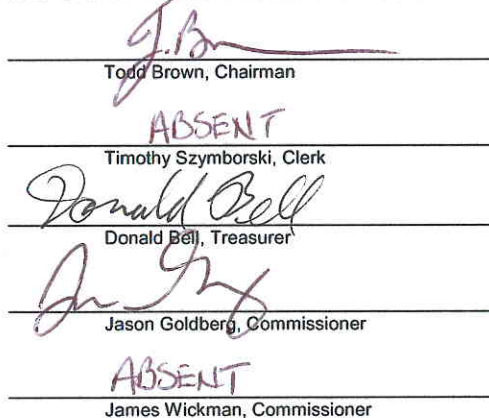 T. Brown
Todd Brown, Chairman
ABSENT
Timothy Szymborski, Clerk
Donald Bell
Donald Bell, Treasurer
Jason Goldberg, Commissioner
ABSENT
James Wickman, Commissioner